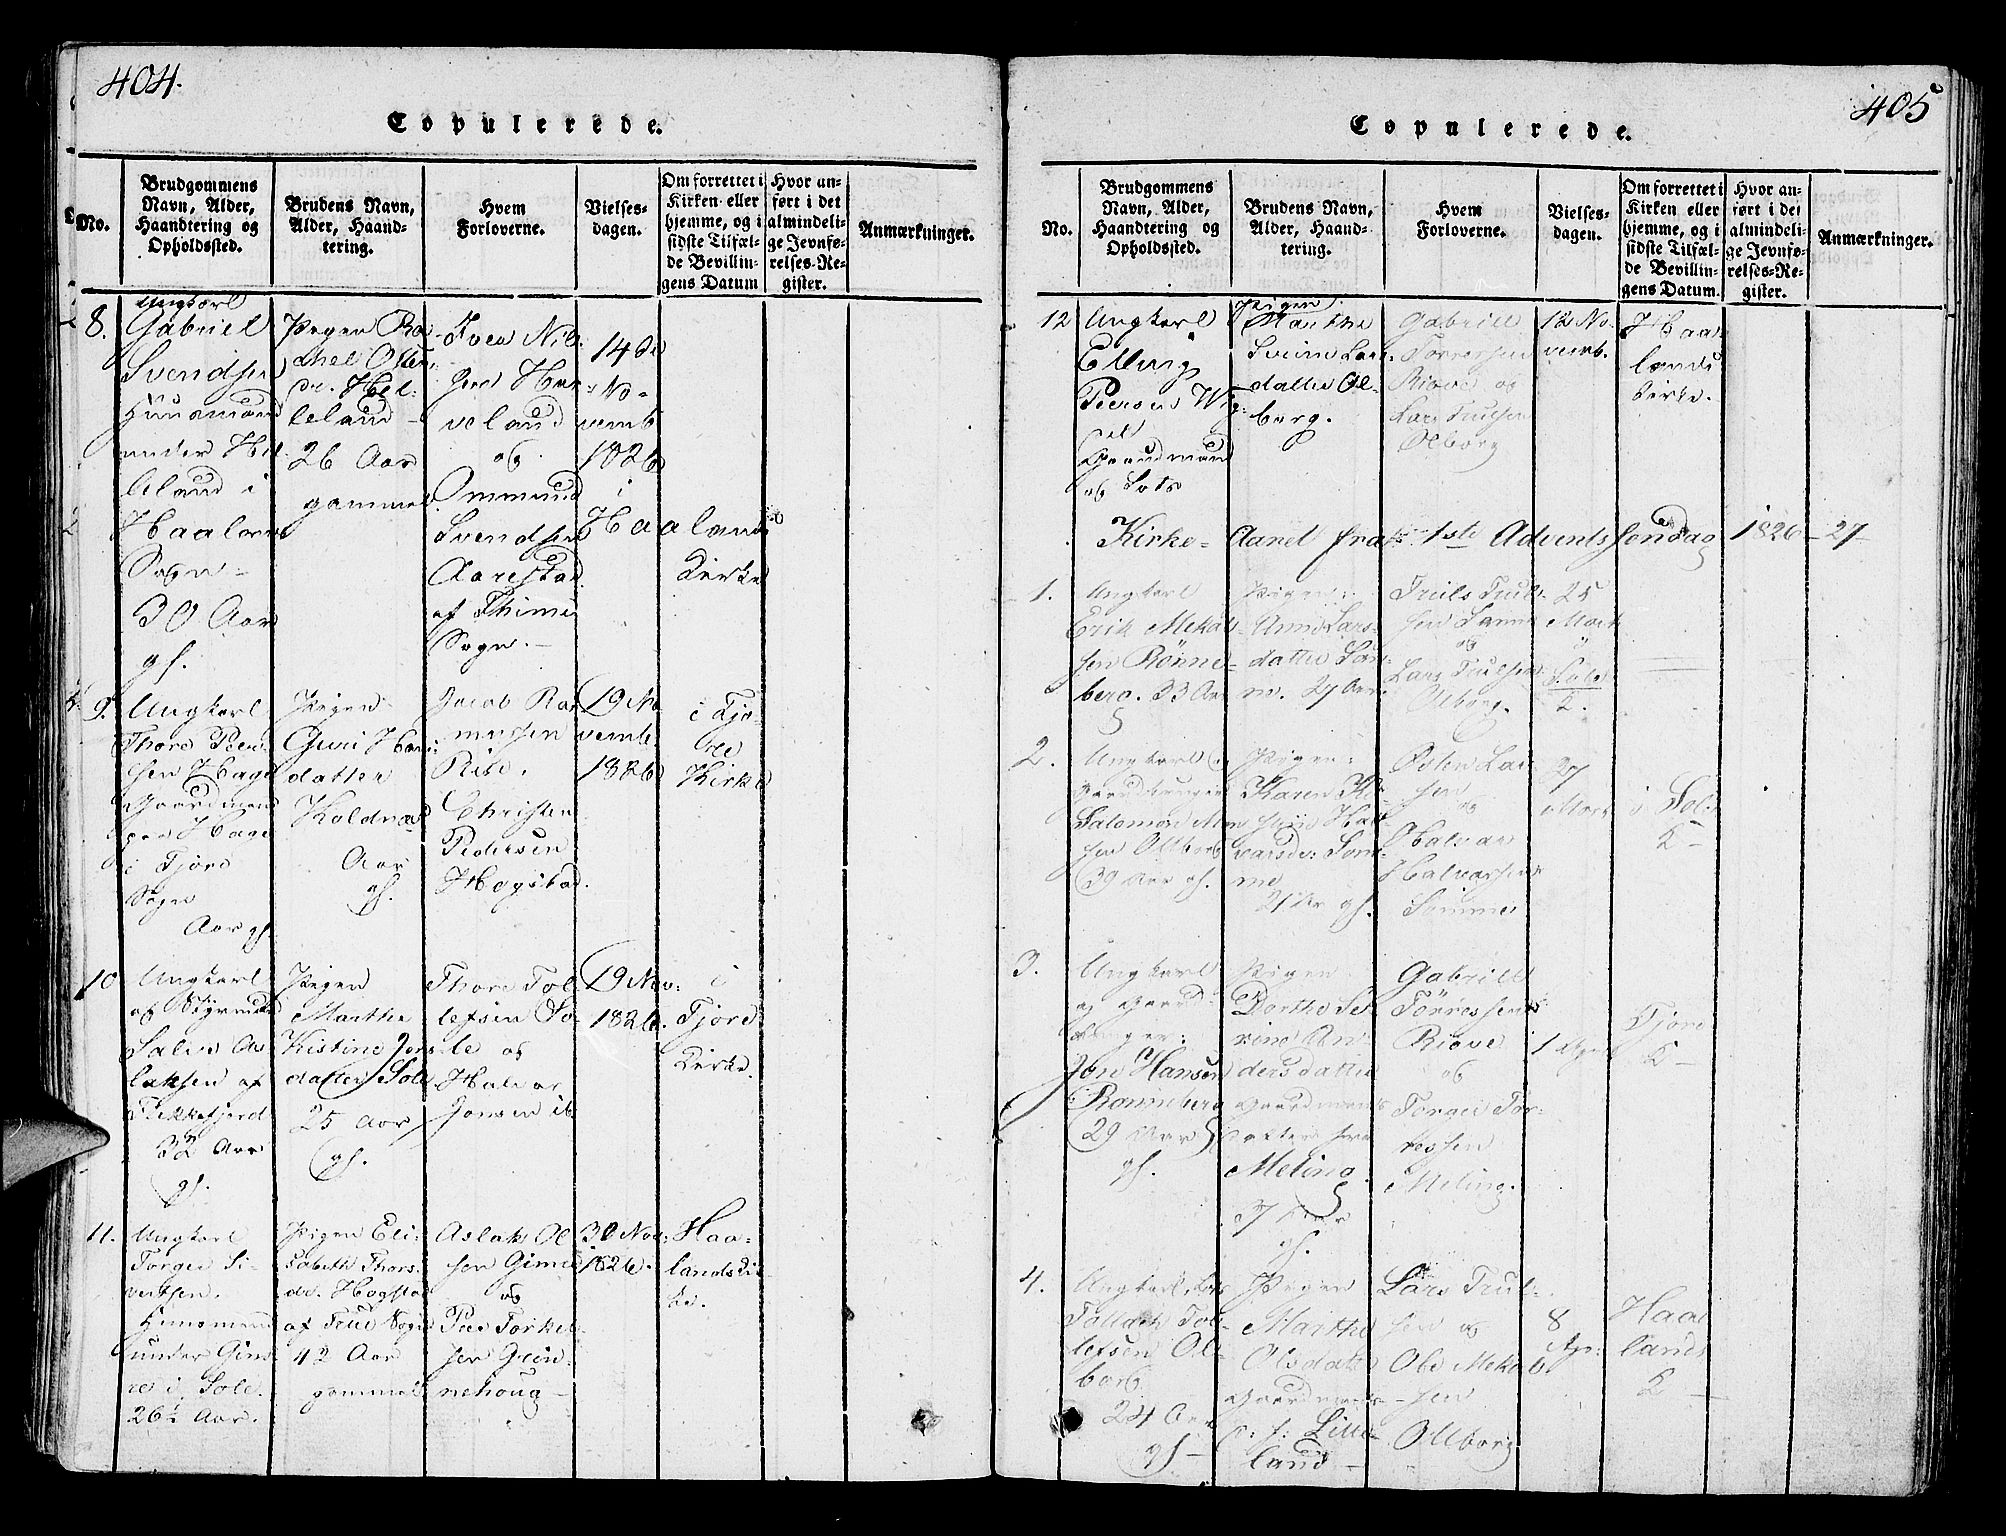 404.
Copulerede.
No.
Brudgommens
Navn, Alder,
Haandtering og
Opholdssted.
Brudens Navn,
Alder, Haand-
tering.
Hvem
Forloverne.
Vielses-
dagen.
Om forrettet i
Kirken eller
hjemme, og i
sidste Tilfæl-
de Bevillin-
gens Datum
Hvor an-
ført i det
almindeli-
ge Jevnfø-
relses-Re-
gister.
Anmærkninger.
8.
Ungkarl
Gabriel
Svendsen
Huusmand
under Hel
leland i
Haaland
Sogn -
30 Aar
gl.
Pigen Ra
chel
dr. Hel-
leland -
26 Aar
gammel
Svend Nils
Har
veland
og
Ommund
Svendsen
Aarestad
af Thime
Sogn. -
14de
No-
vemb
1826
i
Haalands
Kirke
9.
Ungkarl
Thore Peer-
sen Hage
Gaardmand
paa Hage
i Tjora
Sogn
Aar gl.
Pigen
Guri
datter
Koldnæs
Aar
gl.
Jacob Ras
mussen
Risa.
Christen
Pedersen
Hogstad.
19 No
vemb.
1826
i Tjo-
re
Kirke
10
Ungkarl
og Styrmand
Salve As
laksen af
Flekkefjord
32 Aar
gl.
Pigen
Marthe
Kistine Jons
datter Sole
25 Aar
gl.
Thore Tol
lefsen So-
le og
Halvor
Jonsen ib
19 Nov:
1826.
i
Tjora
Kirke.
11.
Ungkarl
Torger Si-
vertsen.
Huusmand
under Gim-
re i Sole.
26½ Aar.
Pigen Eli-
sabeth Thors-
dr. Hogstad
af Sogn
42 Aar
gammel
Aslak Ol
sen Gimre
og
Peer Torkel-
sen Grin-
nehoug -
30 Nov:
1826.
Haa-
lands Kir
ke.
405
Copulerede.
No.
Brudgommens
Navn, Alder,
Haandtering og
Opholdssted.
Brudens Navn,
Alder, Haand-
tering.
Hvem
Forloverne.
Vielses-
dagen.
Om forrettet i
Kirken eller
hjemme, og i
sidste Tilfæl-
de Bevillin-
gens Datum.
Hvor an-
ført i det
almindeli-
ge Jevnfø-
relses-Re-
gister.
Anmærkninger.
12
Ungkarl
Elling
Peersen Wig-
Gaardmand
og Lots
Pigen
Marthe
Lars
datter Ol-
berg.
Gabriell
Torresen
Riave og
Lars Trulsen
Olborg
12 No.
vemb.
Haa
lands
Kirke.
Kirke-Aaret fra 1ste Advents Søndag 1826-27
1.
Ungkarl
Erik Mekal-
sen Rönne-
berg. 33 Aar
Pigen:
Anne Lars-
datter Söm-
me. 27 Aar
Truls Trul-
sen Sömme
og
Lars Trulsen
Olborg.
25
Mart
i
Sole
K.
2.
Ungkarl
Gaardbruger
Salomon Mon
sen Ollborg
39 Aar gl.
Pigen:
Karen
Hal
varsdr: Söm-
me
21 Aar gl.
Osten Lar
sen
og
Halvar
Halvarsen
Sömme
27
Mart
i Sole
K -
3.
Ungkarl
og Gaard-
bruger:
Jon Hansen
Rönneberg
29 Aar
gl.
Pigen
Dorthe Se-
rine An-
dersdatter
Gaardmands
datter fra
Meling
37 Aar
gl.
Gabriell
Törressen
Riave
og
Torger Tor-
ressen
Meling.
1 April
Tjora
K -
4.
Ungkarl, Lots
Tollak Tol-
lefsen Ol-
borg
24 Aar
gl -
Pigen
Marthe
Olsdatter
Gaardmands-
D: f: Lille-
land -
Lars Trul-
sen og
Ole Mekal-
sen
Ollborg
8
Apr:
Haa
lands
K -